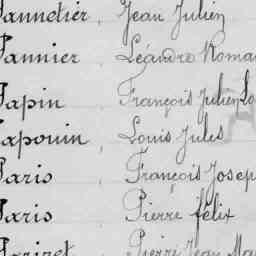 Pannetier, Jean Julien
Pannier, Léandre Roma
Papin, François Julien Lo
Papouin, Louis Jules
Paris, François Josep
Paris, Pierre félix
Pierre Jean Ma